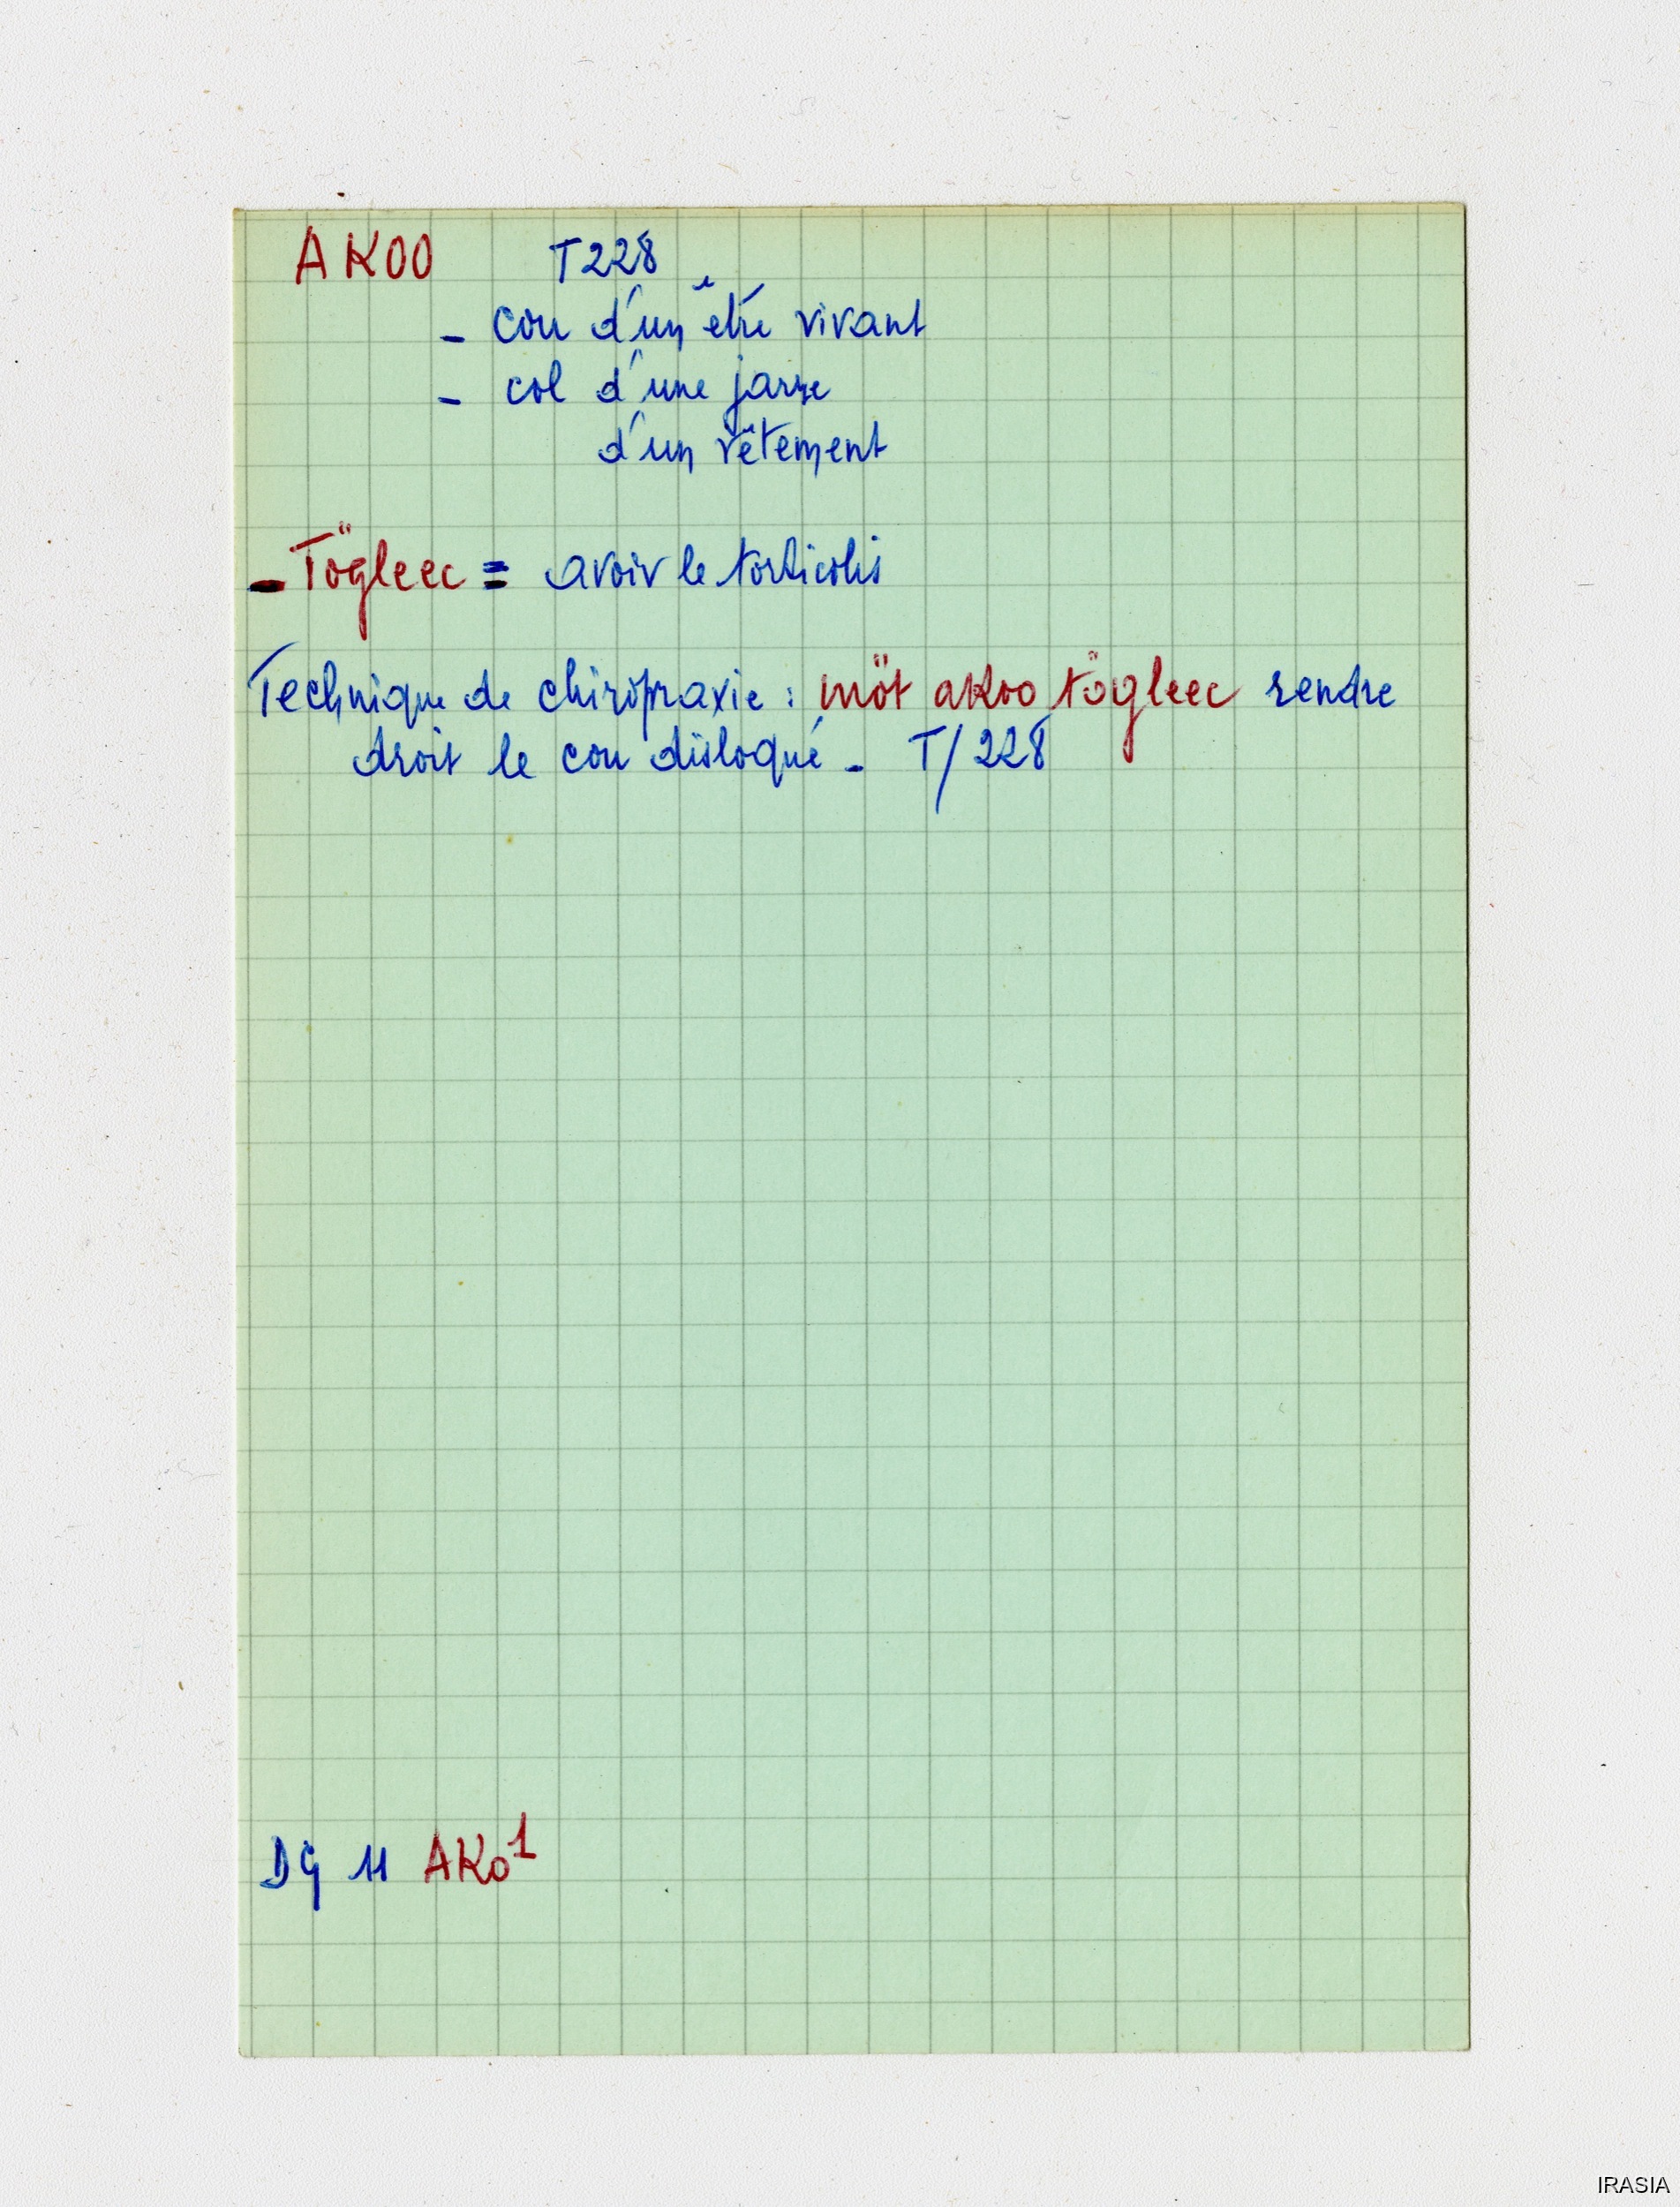 AKOO T228
- cou d'un être vivant
- col d'une jarre
d'un vêtement
- Tögleec = avoir le torticolis
Technique de chiropraxie : möt akoo tögleec rendre
droit le cou disloqué - T/228
DG 11 AKo¹
IRASIA